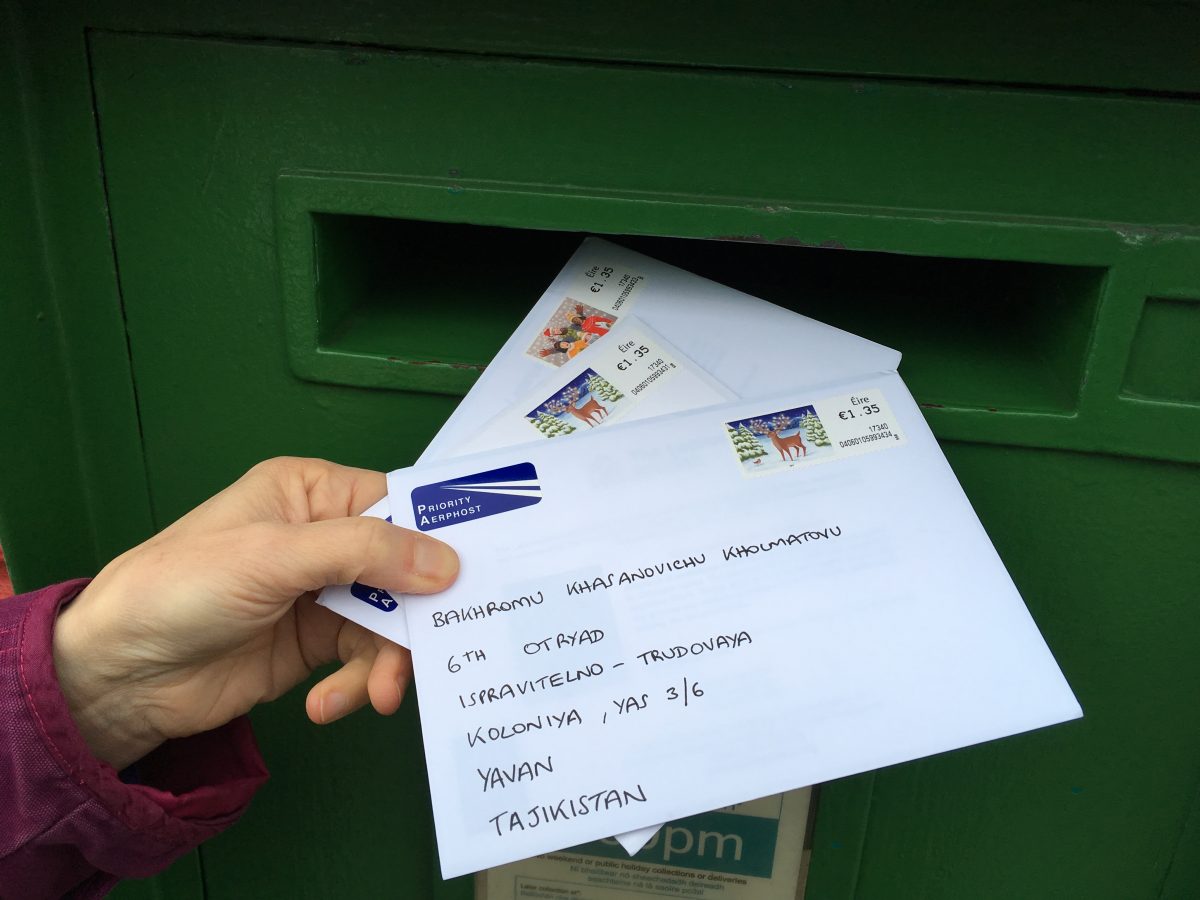 Éire
€1.35
17340
Éire
€1.35
17340
Éire
€1.35
17340
04060105993434 8
PRIORITY
AERPHOST
BAKHROMU KHASANOVICHU KHOLMATOVU
6TH OTRYAD
ISPRAVITELNO - TRUDOVAYA
KOLONIYA, YAS 3/6
YAVAN
TAJIKISTAN
pm
weekend or public holiday collections or deliveries